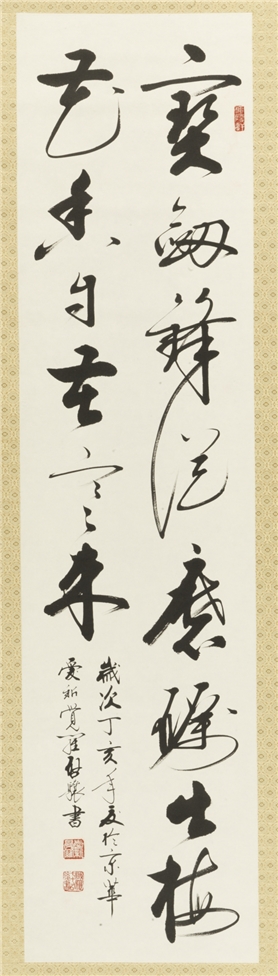 寶劍鋒從磨礪出梅
花香自苦寒來
歲次丁亥年夏於京華
愛新覺羅啟驤書